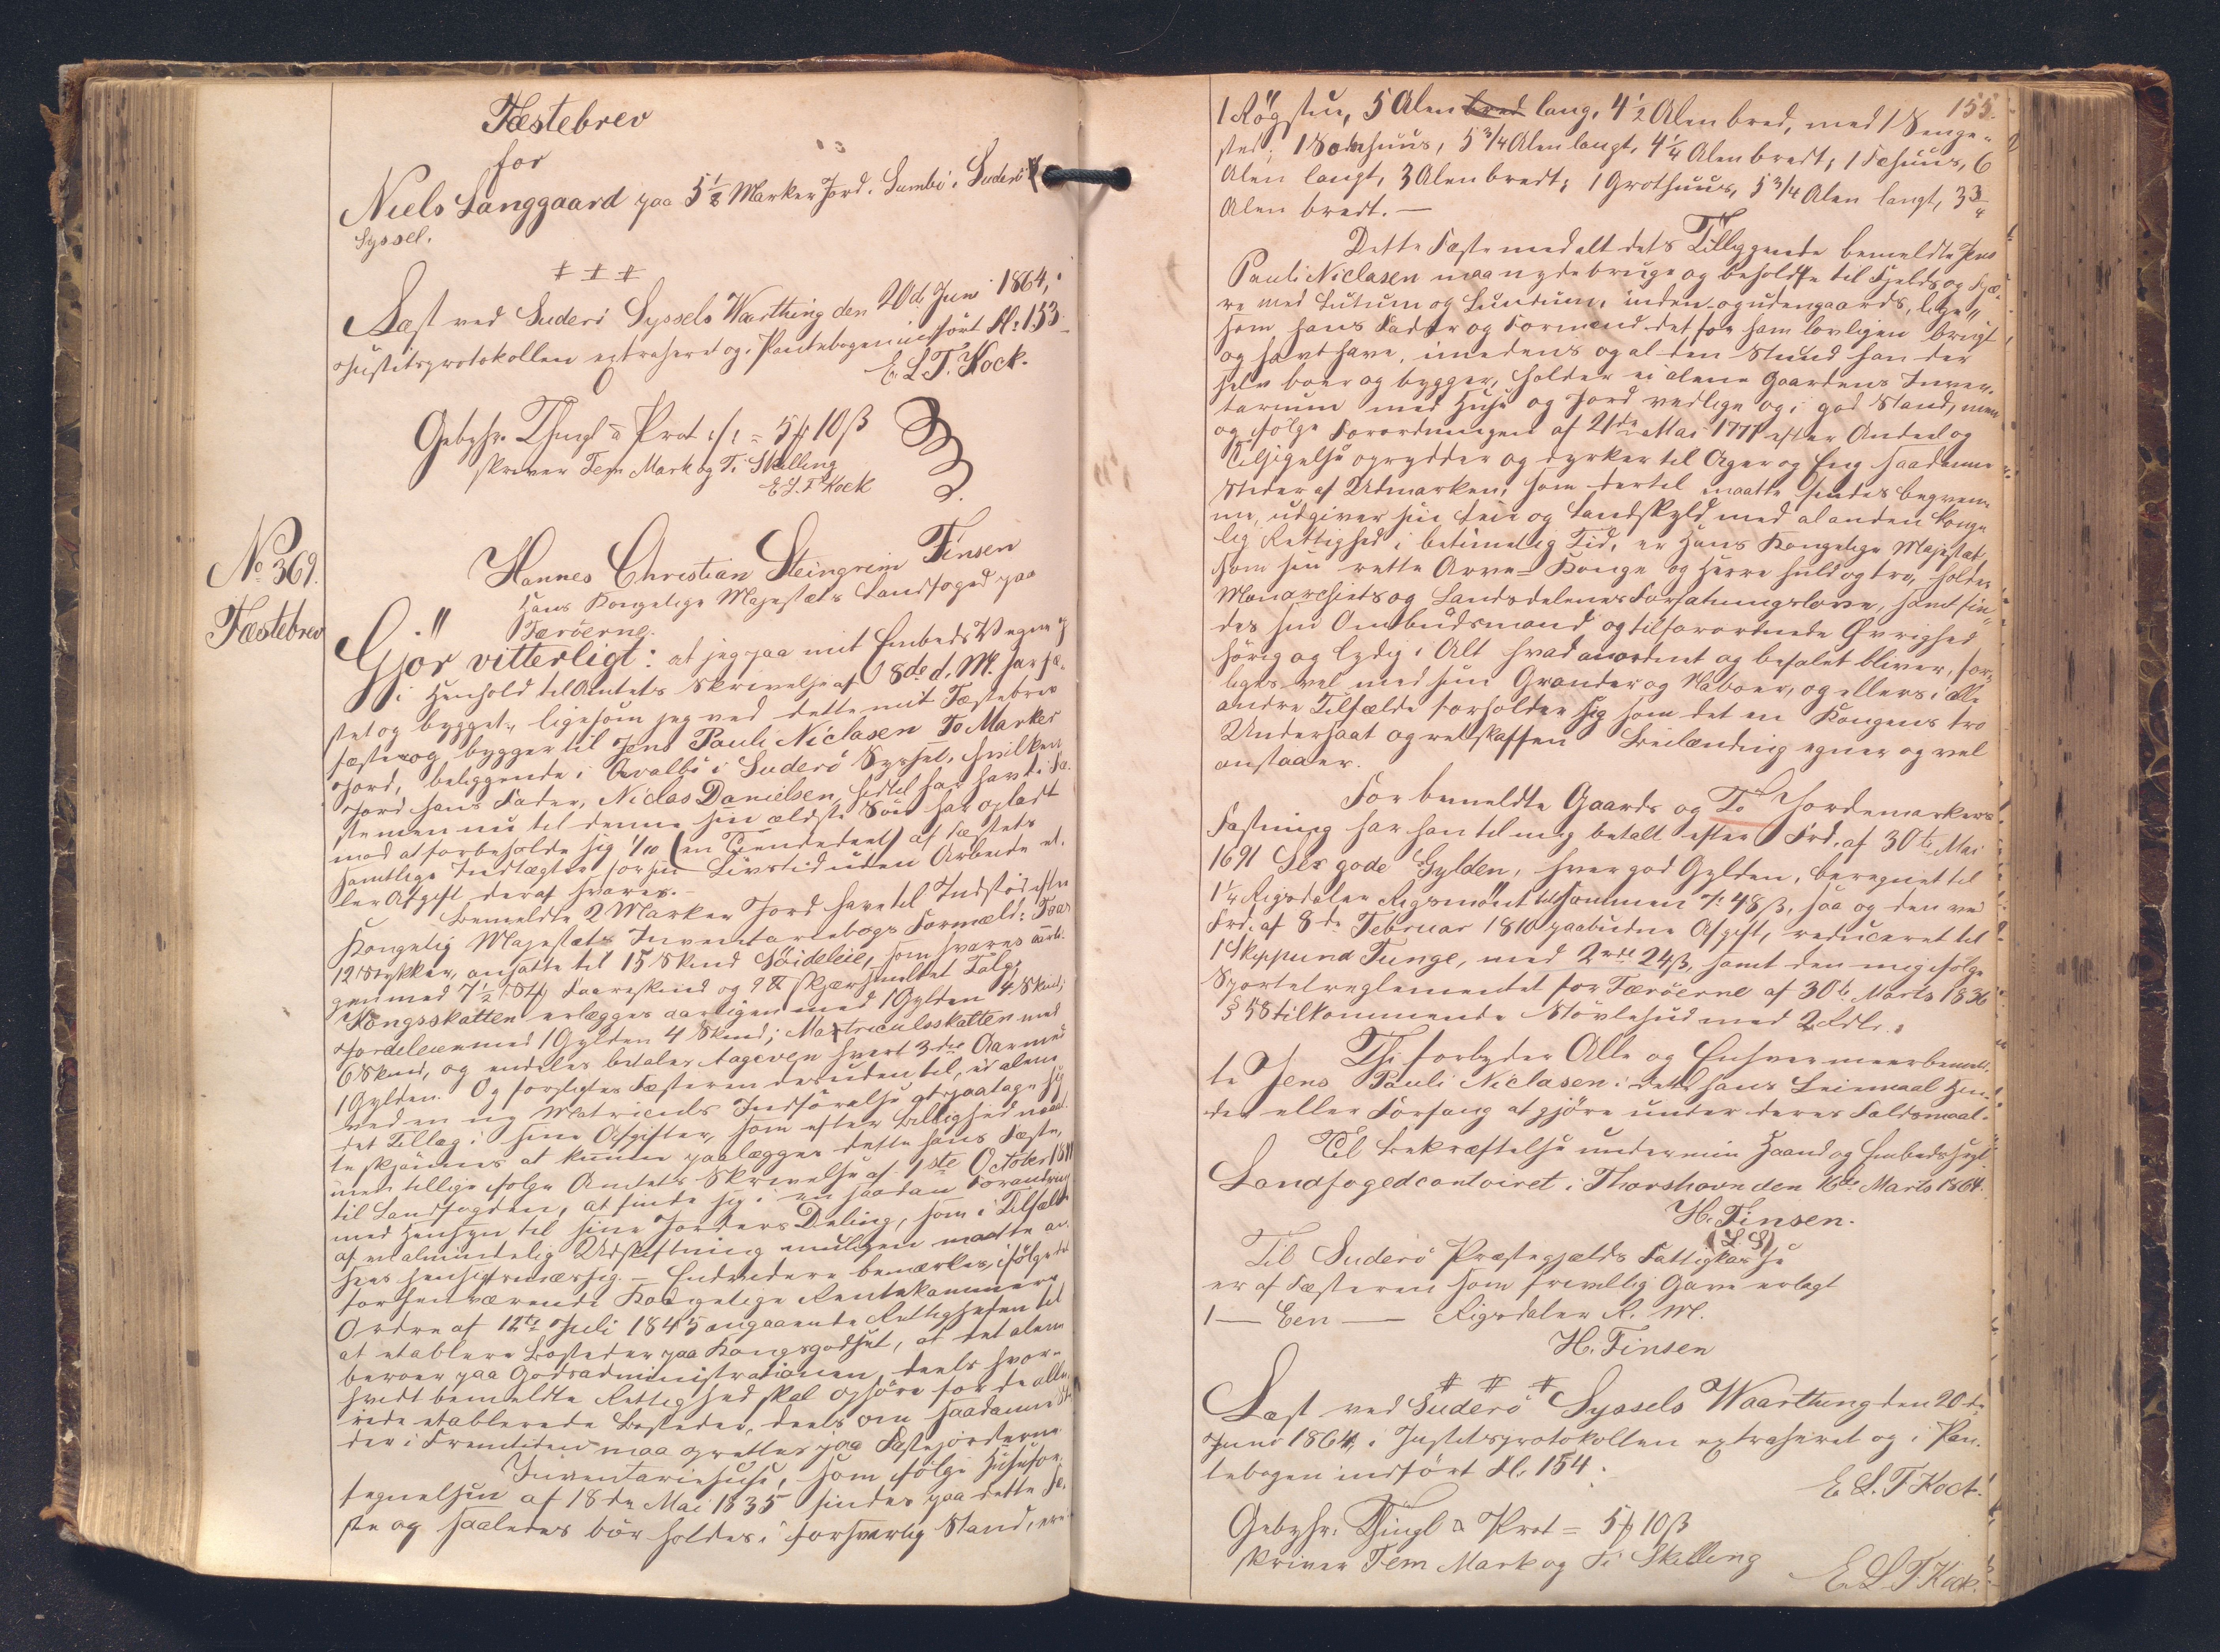 Fæstebrev
for
Niels Langgaard paa 5½ Marker Jord i Sumbö i Suderö
Syssel.
Læst ved Suderö Syssels Waarthing den 20de Juni 1864, i
Justitsprotokollen extraheret og i Pantebogen indfört Fl: 153.
E. L. T. Kock.
Gebyhr. Thingl & Prot = 5 ℳ 10 ß
skriver Fem Mark og Ti Skilling
E. L. T. Kock
No 369.
Fæstebrev
Hannes Christian Steingrim Finsen
Hans Kongelige Majestæts Landfoged paa
Færöerne.
Gjör vitterligt: at jeg paa mit Embeds Vegne og
i Henhold til Amtets Skrivelse af 8de d. M. har fæ-
stet og bygget, ligesom jeg ved dette mit Fæstebrev
fæster og bygger til Jens Pauli Niclasen To Marker
Jord, beliggende i Qvalbö i Suderö Syssel, hvilken
Jord hans Fader, Niclas Danielsen hidtil har havt i Fæ-
ste men nu til denne sin ældste Sön har opladt
mod at forbeholde sig 1/10 (en Tiendedeel) af Fæstets
samtlige Indtægter for sin Livstid uden Arbeide el-
ler Afgift deraf svarer.
Bemeldte 2 Marker Jord have til Indstöd efter
Kongelig Majestæts Inventariebogs Formeld: Faar
12 Stykker, ansatte til 15 Skind Söideleie, som svares aarli-
gen med 7½ Faareskind og 9 ℔ skjærsmeltet Talg;
Kongsskatten erlægges aarligen med 1 Gylden 4 Skind;
Jordeleien med 1 Gylden 4 Skind; Matriculsskatten med
6 Skind, og endelig betaler Fageren hvert 3die Aar med
1 Gylden. Og forpligtes Fæsteren desuden til, ei alene
ved en ny Matriculs Indförelse at paatage sig
det Tillæg i sine Afgifter, som efter Billighed maat-
te skjönnes at kunne paalægges dette hans Fæste,
men tillige ifölge Amtets Skrivelse af 1ste October 18
til Landfogden, at finde sig i en saadan Forandring
med Hensyn til sine Jorders Deling, som i Tilfælde
af en almindelig Udskiftning muligen maatte an-
sees hensigtsmæssig. — Endvidere bemærkes, ifölge det
forhenværende Kongelige Rentekammers
Ordre af 12te Juli 1845 angaaende Rettigheden til
at etablere Bosteder paa Kongsgodset, at det alene
beroer paa Godsadministrationen, deels hvor-
vidt bemeldte Rettighed skal ophöre for de alle-
rede etablerede Bosteder, deels om saadanne Ste-
der i Fremtiden maa oprettes paa Fæstejorderne.
Inventariehuse, som ifölge Husefor-
tegnelsen af 18de Mai 1835 findes paa dette Fæ-
ste og saaledes bör holdes i forsvarlig Stand, ere:
155.
1 Rögstue, 5 Alen bred lang, 4½ Alen bred, med 1 Senge-
sted; 1 Sodehuus, 5¾ Alen langt, 4¼ Alen bredt; 1 Fæhuus, 6
Alen langt, 3 Alen bredt; 1 Grothuus, 5¾ Alen langt, 3¾
Alen bredt. —
Dette Fæste med alt dets Tilliggende bemeldte Jens
Pauli Niclasen maa nyde bruge og beholde til Fjelds og Fjæ-
re med Lutum og Lundum, inden og udengaards, lige-
som hans Fader og Formænd det for ham lovligen brugt
og havt have, imedens og al den Stund han der
selv boer og bygger, holder ei alene Gaardens Inven-
tarium med Huse og Jord vedlige og i god Stand, men
og ifölge Forordningen af 21de Mai 1777 efter Andeel og
Tilsigelse oprydder og dyrker til Ager og Eng saadanne
Steder af Udmarken, som dertil maatte findes beqvem-
me, udgiver sin Leie og Landskyld med al anden Konge-
lig Rettighed i betimelig Tid, er Hans Kongelige Majestæt,
som sin rette Arve-Konge og Herre huld og tro, holder
Monarchiets og Landsdelenes Forfatningslove, samt fin-
des sin Ombudsmand og tilforordnede Övrighed
hörig og lydig i Alt hvad anordnet og befalet bliver, for-
liges vel med sin Grander og Naboer, og ellers i alle
andre Tilfælde forholder sig som det en Kongens tro
Undersaat og retskaffen Leilænding egner og vel
anstaaer.
For bemeldte Gaards og To Jordemarkers
Fæstning har han til mig betalt efter Frd. af 30te Mai
1691 Sex gode Gylden, hver god Gylden, beregnet til
1¼ Rigsdaler Rigsmönt tilsammen 7: 48 ß, saa og den ved
Frd. af 8de Februar 1810 paabudne Afgift, reduceret til
1 Skippund Tunge, med 2 rd 24 ß, samt den mig ifölge
Sportelreglementet for Færöerne af 30te Marts 1836
§ 58 tilkommende Stövlehud med 2 Rdlr.
Thi forbyder Alle og Enhver meerbemeld-
te Jens Pauli Niclasen i dette hans Leiemaal Hin-
der eller Forfang at gjöre under deres Faldsmaal.
Til Bekræftelse under min Haand og Embedssegl.
Landfogedcontoiret i Thorshavn den 16de Marts 1864.
H. Finsen.
(L. S.)
Til Suderö Præstegjælds Fattigkasse
er af Fæsteren som frivillig Gave erlagt
1 — Een — Rigsdaler R. M.
H. Finsen
Læst ved Suderö Syssels Waarthing den 20de
Juni 1864, i Justitsprotokollen extraheret og i Pan-
tebogen indfört Fl. 154.
E. L. T. Kock.
Gebyhr: Thingl & Prot = 5 ℳ 10 ß
skriver Fem Mark og Ti Skilling
E. L. T. Kock.